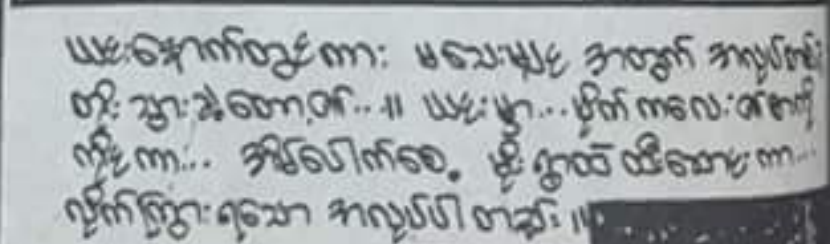 ယင်းနောက်တွင်ကား မသေးမျှင် အတွက် အလုပ်တစ်
တိုး သွားခဲ့တော့၏..။ ယင်းမှာ...မှိတ် ကလေးတစ်
ကိုင်ကား... အိမ်ပေါက်စေ့ မိုးရွာထဲ ထီးဆောင်းကာ...
လိုက်ကြွားရသော အလုပ်ပါ တည်း ။